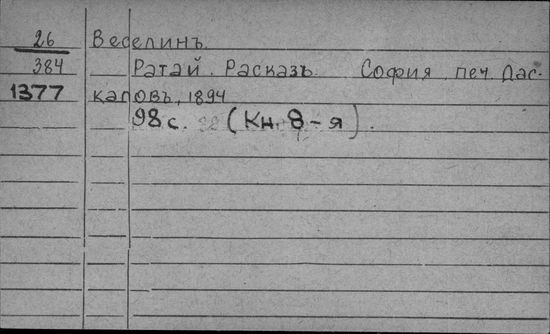 26 Веселинъ.
384 Ратай. Расказъ. София, печ. Дас-
1377 каловъ, 1894
98 с. 32 (Кн. 8-я).